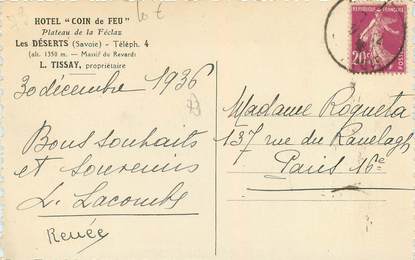 HOTEL "COIN de FEU"
Plateau de la Féclaz
Les DÉSERTS (Savoie) - Téléph. 4
(alt. 1350 m. - Massif du Revard)
L. TISSAY, propriétaire
30 décembre 1936
Bons souhaits
et souvenirs
L. Lacombe
Renée
REPUBLIQUE FRANÇAISE
20c
POSTES
Madame Roqueta
137 rue du Ranelagh
Paris 16e